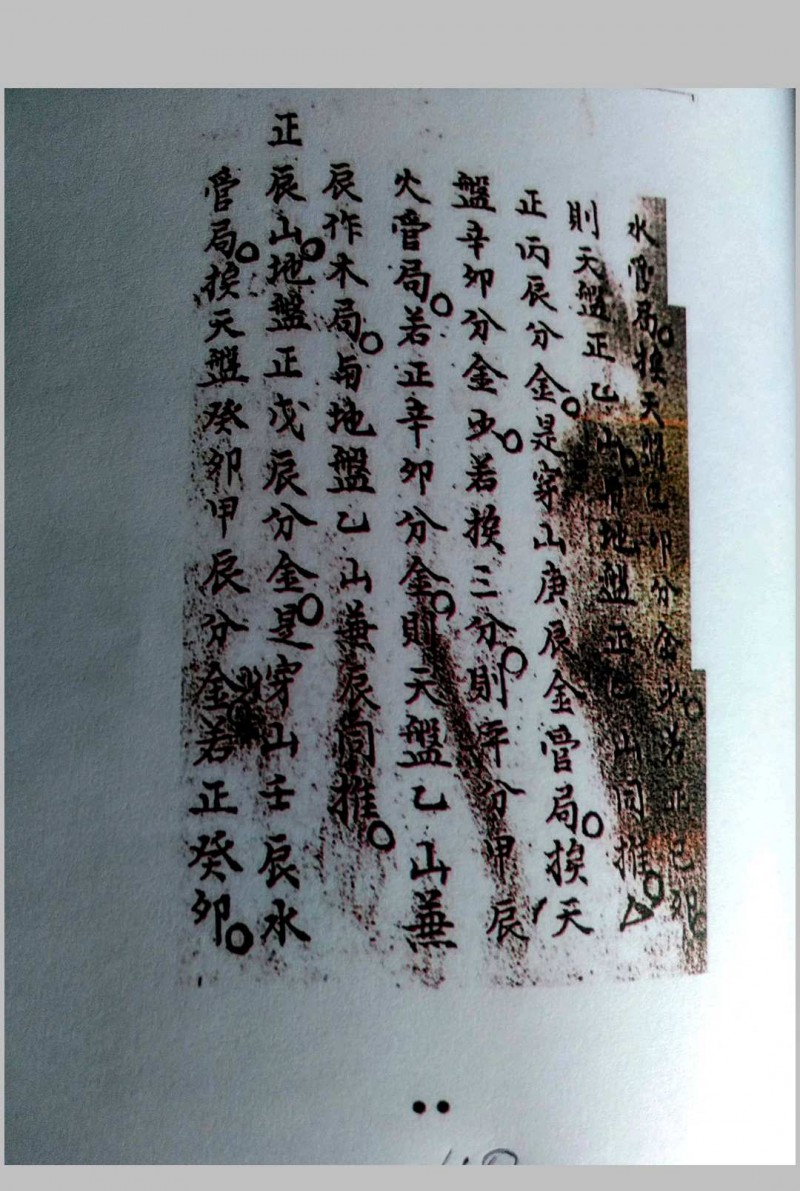 水管局。挨天盤己卯分金也。若正己卯。
則天盤正乙山。与地盤正乙山同推。
正丙辰分金。是穿山庚辰金管局。挨天
盤辛卯分金也。若挨三分。則平分甲辰
火管局。若正辛卯分金。則天盤乙山兼
辰作木局。与地盤乙山兼辰同推。
正辰山。地盤正戊辰分金。是穿山壬辰水
管局。挨天盤癸卯甲辰分金若正癸卯。